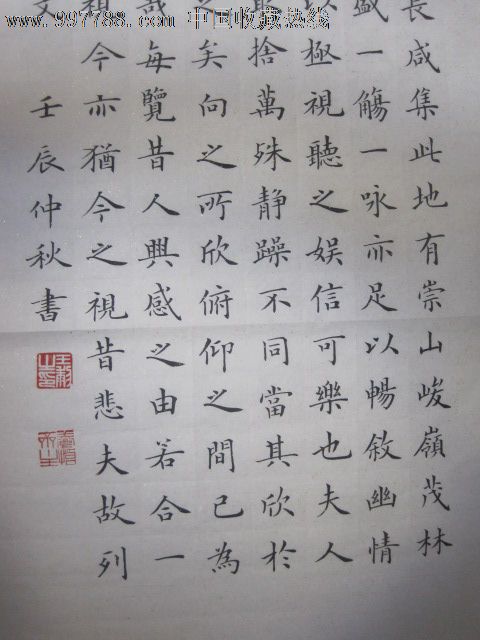 www.997788.com 中国收藏热线
長咸集此地有崇山峻嶺茂林
盛一觴一詠亦足以暢敘幽情
以極視聽之娱信可樂也夫人
捨萬殊静躁不同當其欣於
之矣向之所欣俯仰之間已為
哉每覽昔人興感之由若合一
視今亦猶今之視昔悲夫故列
文
壬辰仲秋書